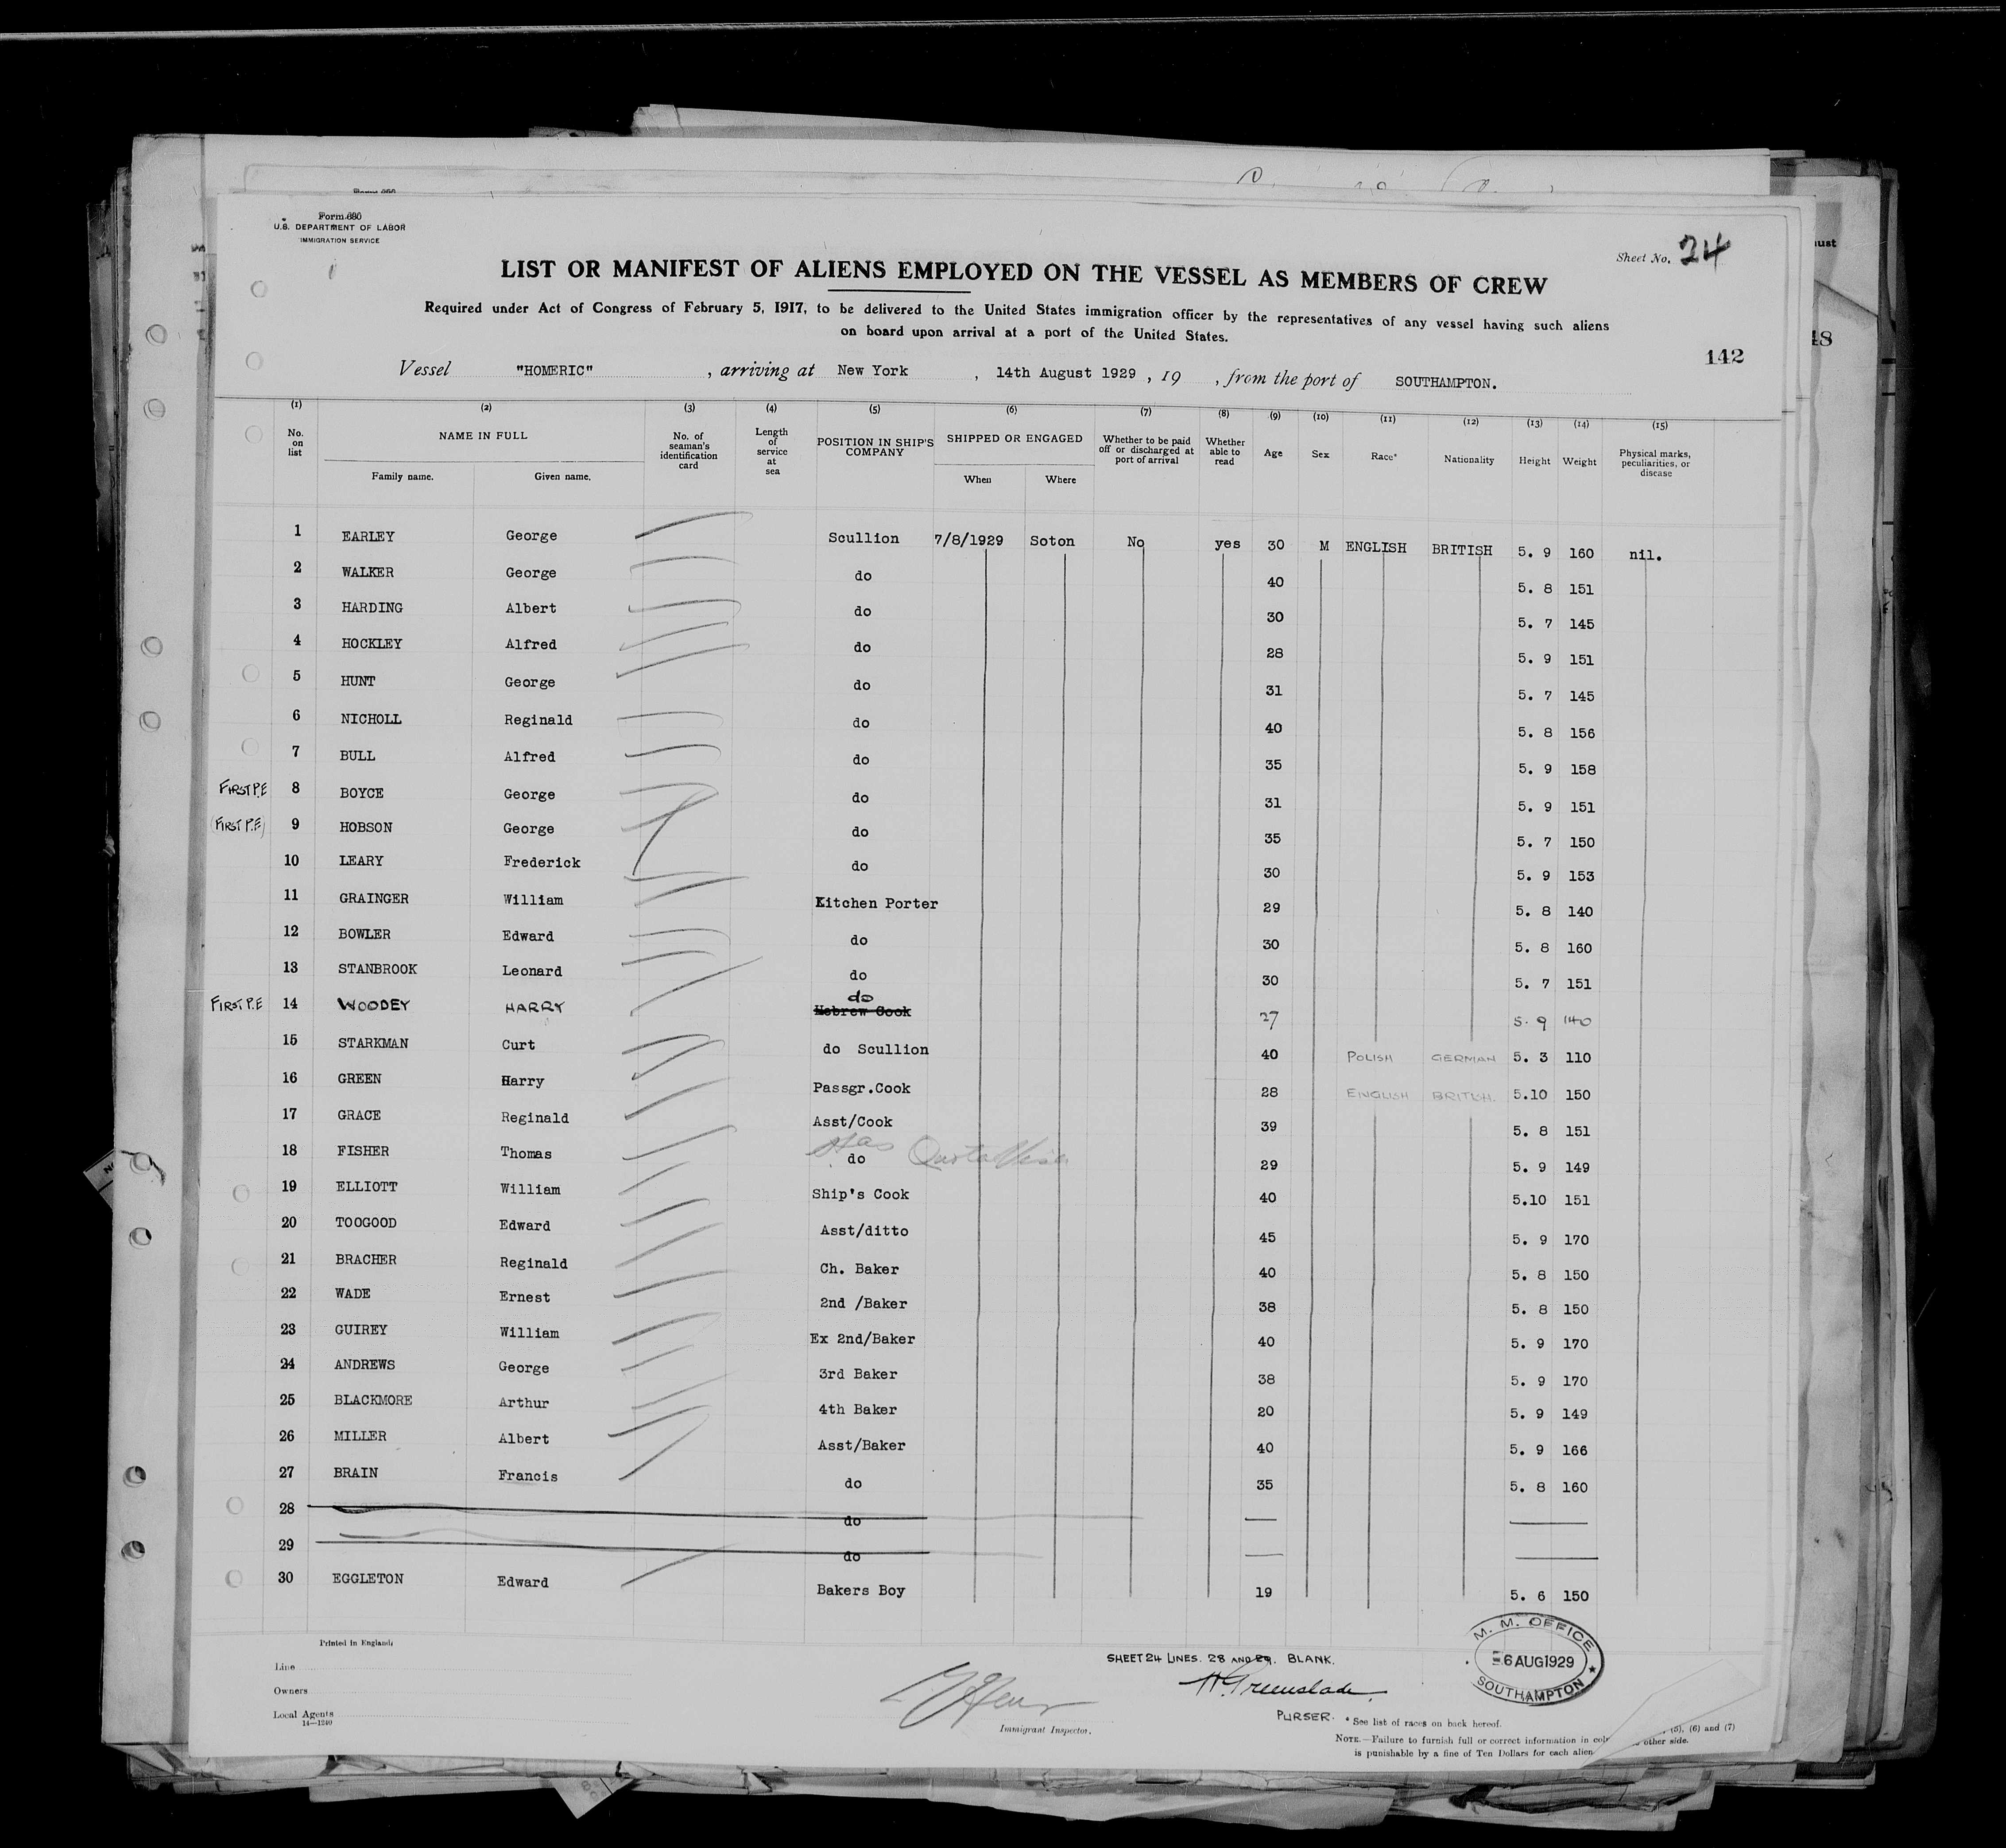 Form 680
U.S. DEPARTMENT OF LABOR
IMMIGRATION SERVICE
Sheet No. 24
LIST OR MANIFEST OF ALIENS EMPLOYED ON THE VESSEL AS MEMBERS OF CREW
Required under Act of Congress of February 5, 1917, to be delivered to the United States immigration officer by the representatives of any vessel having such aliens
on board upon arrival at a port of the United States.
142
Vessel "HOMERIC", arriving at New York, 14th August 1929, 19 , from the port of SOUTHAMPTON.
(1) (2) (3) (4) (5) (6) (7) (8) (9) (10) (11) (12) (13) (14) (15)
No. on list NAME IN FULL Family name. Given name. No. of seaman's identification card Length of service at sea POSITION IN SHIP'S COMPANY SHIPPED OR ENGAGED When Where Whether to be paid off or discharged at port of arrival Whether able to read Age Sex Race* Nationality Height Weight Physical marks, peculiarities, or disease
1 EARLEY George Scullion 7/8/1929 Soton No yes 30 M ENGLISH BRITISH 5. 9 160 nil.
2 WALKER George do 40 5. 8 151
3 HARDING Albert do 30 5. 7 145
4 HOCKLEY Alfred do 28 5. 9 151
5 HUNT George do 31 5. 7 145
6 NICHOLL Reginald do 40 5. 8 156
7 BULL Alfred do 35 5. 9 158
FIRST P.E 8 BOYCE George do 31 5. 9 151
(FIRST P.E) 9 HOBSON George do 35 5. 7 150
10 LEARY Frederick do 30 5. 9 153
11 GRAINGER William Kitchen Porter 29 5. 8 140
12 BOWLER Edward do 30 5. 8 160
13 STANBROOK Leonard do 30 5. 7 151
FIRST P.E 14 WOODEY HARRY do Hebrew Cook 27 5. 9 140
15 STARKMAN Curt do Scullion 40 POLISH GERMAN 5. 3 110
16 GREEN Harry Passgr.Cook 28 ENGLISH BRITISH. 5.10 150
17 GRACE Reginald Asst/Cook 39 5. 8 151
Has Quota Visa
18 FISHER Thomas do 29 5. 9 149
19 ELLIOTT William Ship's Cook 40 5.10 151
20 TOOGOOD Edward Asst/ditto 45 5. 9 170
21 BRACHER Reginald Ch. Baker 40 5. 8 150
22 WADE Ernest 2nd /Baker 38 5. 8 150
23 GUIREY William Ex 2nd/Baker 40 5. 9 170
24 ANDREWS George 3rd Baker 38 5. 9 170
25 BLACKMORE Arthur 4th Baker 20 5. 9 149
26 MILLER Albert Asst/Baker 40 5. 9 166
27 BRAIN Francis do 35 5. 8 160
28 do
29 do
30 EGGLETON Edward Bakers Boy 19 5. 6 150
Printed in England
Line
Owners
Local Agents
14—1240
Immigrant Inspector.
SHEET 24 LINES. 28 AND 29. BLANK.
H Greenslade.
PURSER.
M. M. OFFICE
6 AUG 1929
SOUTHAMPTON
* See list of races on back hereof.
NOTE.—Failure to furnish full or correct information in (5), (6) and (7)
is punishable by a fine of Ten Dollars for each alien other side.